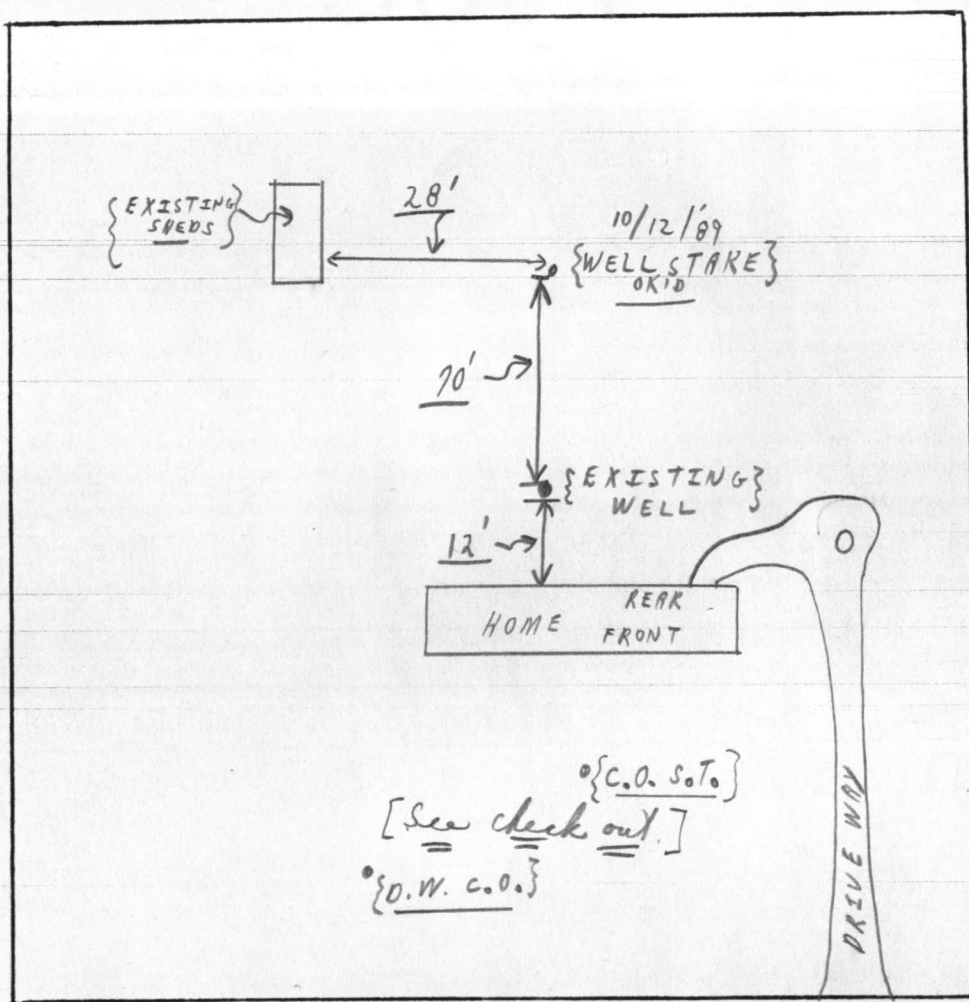 28'
{EXISTING
SHEDS}
10/12/'89
{WELL STAKE}
OK'D
70'
{EXISTING}
WELL
12'
REAR
HOME FRONT
{C.O. S.T.}
[See check out.]
{D.W. C.O.}
DRIVE WAY